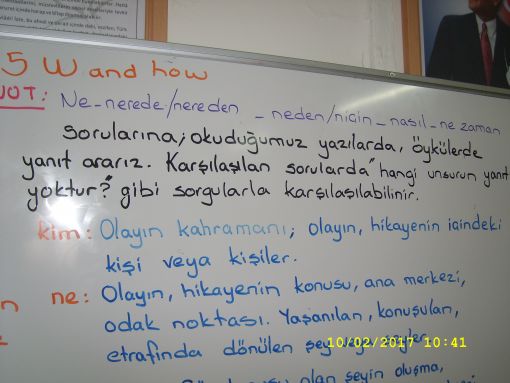 5 W and how
NOT: Ne-nerede/nereden - neden/niçin - nasıl - ne zaman
sorularına; okuduğumuz yazılarda, öykülerde
yanıt ararız. Karşılaşılan sorularda "hangi unsurun yanıt
yoktur?" gibi sorgularla karşılaşılabilinir.
kim: Olayın kahramanı; olayın, hikayenin içindeki
kişi veya kişiler.
ne: Olayın, hikayenin konusu, ana merkezi,
odak noktası. Yaşanılan, konuşulan,
etrafında dönülen şey
olan şeyin oluşma,
10/02/2017 10:41